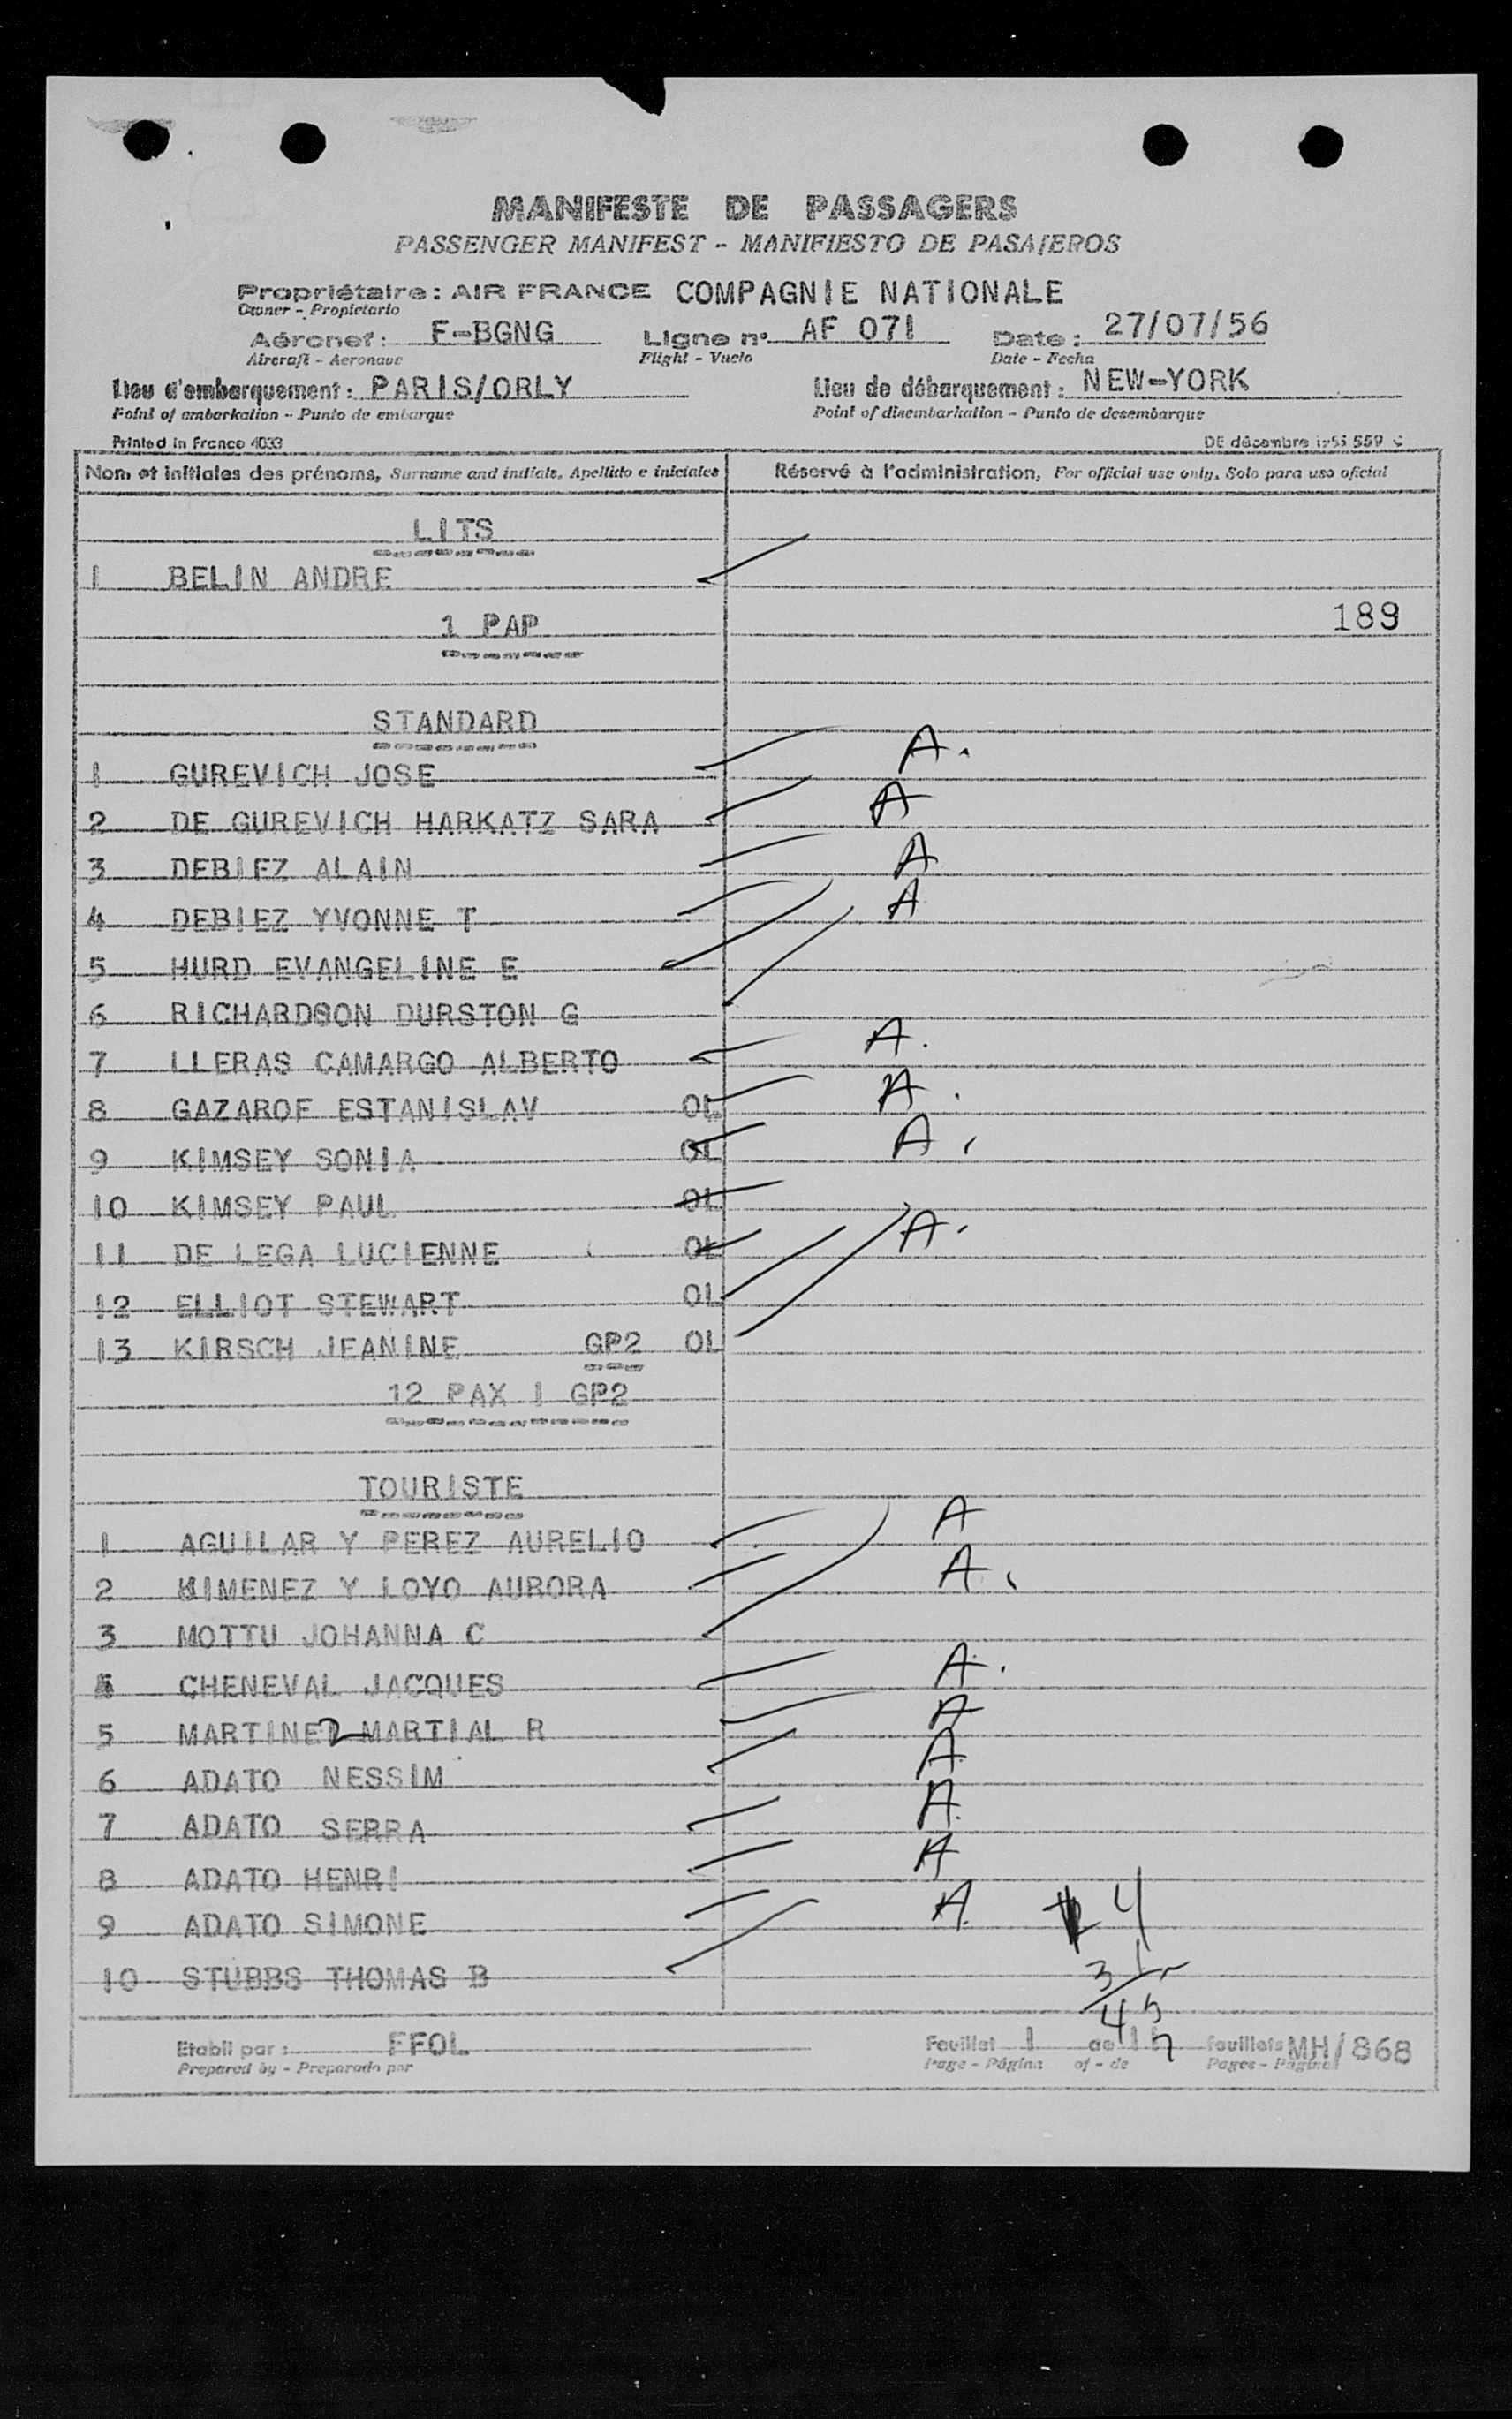 MANIFESTE DE PASSAGERS
PASSENGER MANIFEST - MANIFIESTO DE PASAJEROS
Propriétaire: AIR FRANCE COMPAGNIE NATIONALE
Owner - Propietario
Aéronef: F-BGNG Ligne n° AF 071 Date: 27/07/56
Aircraft - Aeronave Flight - Vuelo Date - Fecha
Lieu d'embarquement: PARIS/ORLY Lieu de débarquement: NEW-YORK
Point of embarkation - Punto de embarque Point of disembarkation - Punto de desembarque
Printed in France 4033 DE décembre 1955 559 C
Nom et initiales des prénoms, Surname and initials, Apellido e iniciales Réservé à l'administration, For official use only, Solo para uso oficial
LITS
1 BELIN ANDRE
1 PAP 189
STANDARD
1 GUREVICH JOSE A.
2 DE GUREVICH HARKATZ SARA A
3 DEBIEZ ALAIN A
4 DEBIEZ YVONNE T A
5 HURD EVANGELINE E
6 RICHARDSON DURSTON G
7 LLERAS CAMARGO ALBERTO A.
8 GAZAROF ESTANISLAV OL A.
9 KIMSEY SONIA OL A.
10 KIMSEY PAUL OL
11 DE LEGA LUCIENNE OL A.
12 ELLIOT STEWART OL
13 KIRSCH JEANINE GP2 OL
12 PAX 1 GP2
TOURISTE
1 AGUILAR Y PEREZ AURELIO A
2 XIMENEZ Y LOYO AURORA A.
3 MOTTU JOHANNA C
4 CHENEVAL JACQUES A.
5 MARTINEZ MARTIAL R A
6 ADATO NESSIM A
7 ADATO SERRA A.
8 ADATO HENRI A
9 ADATO SIMONE A. 4
10 STUBBS THOMAS B 31
45
Etabli par: FFOL Feuillet 1 de feuillets MH/868
Prepared by - Preparado por Page - Página of - de Pages - Páginas